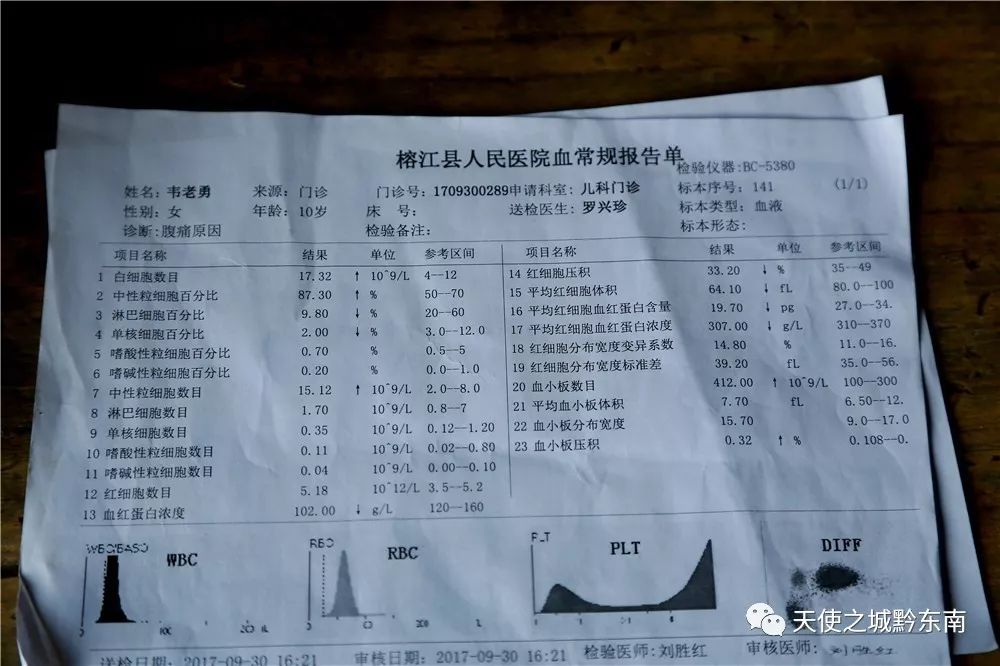 榕江县人民医院血常规报告单
检验仪器:BC-5380
姓名: 韦老勇 来源: 门诊 门诊号: 1709300289 申请科室: 儿科门诊 标本序号: 141 (1/1)
性别: 女 年龄: 10岁 床 号: 送检医生: 罗兴珍 标本类型: 血液
诊断: 腹痛原因 检验备注: 标本形态:
项目名称 结果 单位 参考区间
1 白细胞数目 17.32 ↑ 10^9/L 4--12
2 中性粒细胞百分比 87.30 ↑ % 50--70
3 淋巴细胞百分比 9.80 ↓ % 20--60
4 单核细胞百分比 2.00 ↓ % 3.0--12.0
5 嗜酸性粒细胞百分比 0.70 % 0.5--5
6 嗜碱性粒细胞百分比 0.20 % 0.0--1.0
7 中性粒细胞数目 15.12 ↑ 10^9/L 2.0--8.0
8 淋巴细胞数目 1.70 10^9/L 0.8--7
9 单核细胞数目 0.35 10^9/L 0.12--1.20
10 嗜酸性粒细胞数目 0.11 10^9/L 0.02--0.80
11 嗜碱性粒细胞数目 0.04 10^9/L 0.00--0.10
12 红细胞数目 5.18 10^12/L 3.5--5.2
13 血红蛋白浓度 102.00 ↓ g/L 120--160
项目名称 结果 单位 参考区间
14 红细胞压积 33.20 ↓ % 35--49
15 平均红细胞体积 64.10 ↓ fL 80.0--100
16 平均红细胞血红蛋白含量 19.70 ↓ pg 27.0--34.
17 平均红细胞血红蛋白浓度 307.00 ↓ g/L 310--370
18 红细胞分布宽度变异系数 14.80 % 11.0--16.
19 红细胞分布宽度标准差 39.20 fL 35.0--56.
20 血小板数目 412.00 ↑ 10^9/L 100--300
21 平均血小板体积 7.70 fL 6.50--12.
22 血小板分布宽度 15.70 9.0--17.0
23 血小板压积 0.32 ↑ % 0.108--0.
WBC/BASO WBC RBC RBC PLT PLT DIFF
送检日期: 2017-09-30 16:21 审核日期: 2017-09-30 16:21 检验医师: 刘胜红 审核医师:
天使之城黔东南